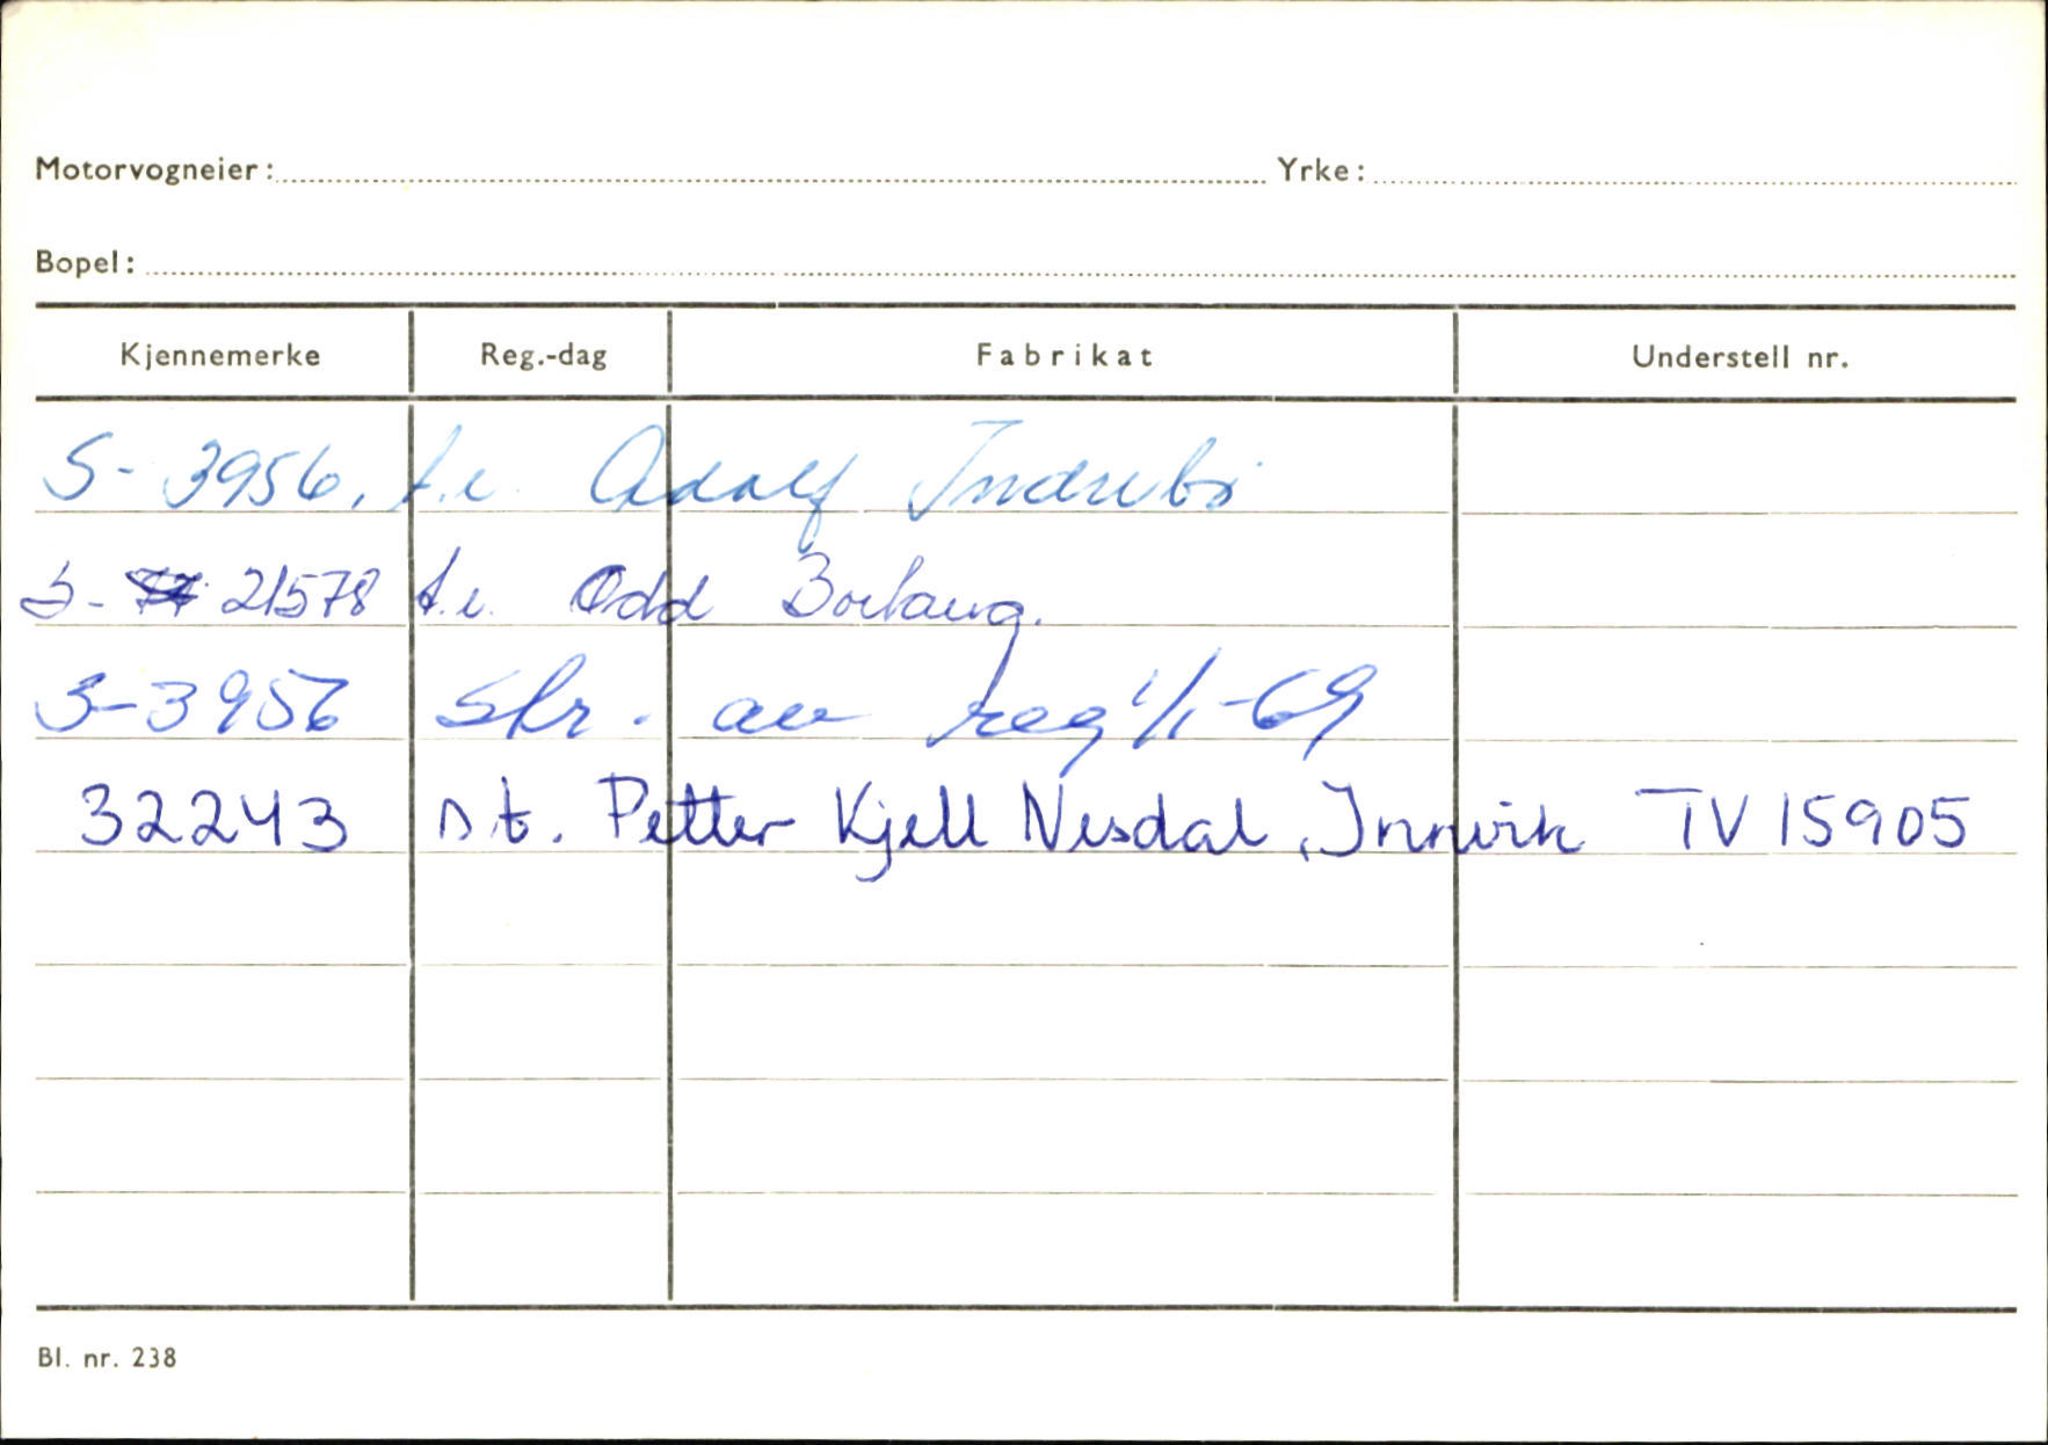 Motorvogneier: Yrke:
Bopel:
Kjennemerke Reg.-dag Fabrikat Understell nr.
S-3956, t.e. Adolf Indrebø
S- 21578 t.e. Odd Borlaug.
S-3956 Skr. av reg 1/1-69
32243 s.t. Petter Kjell Nesdal, Innvik TV15905
Bl. nr. 238